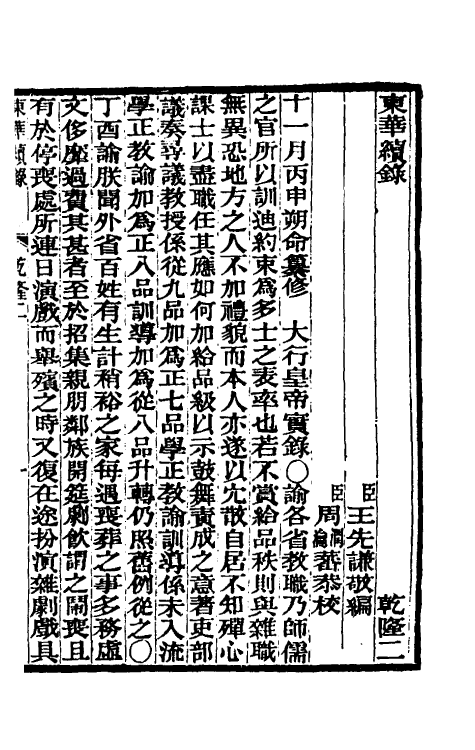 東華續錄 乾隆二
臣王先謙敬編
臣周潤蕃周瀹蕃恭校
十一月丙申朔命纂修 大行皇帝實錄〇諭各省教職乃師儒
之官所以訓迪約束為多士之表率也若不賞給品秩則與雜職
無異恐地方之人不加禮貌而本人亦遂以宂散自居不知殫心
課士以盡職任其應如何加給品級以示鼓舞責成之意著吏部
議奏尋議教授係從九品加為正七品學正教諭訓導係未入流
學正教諭加為正八品訓導加為從八品升轉仍照舊例從之〇
丁酉諭朕聞外省百姓有生計稍裕之家每遇喪葬之事多務虛
文侈靡過費其甚者至於招集親朋鄰族開筵劇飲謂之鬧喪且
有於停喪處所連日演戲而舉殯之時又復在途扮演雜劇戲具
東華續錄 乾隆二